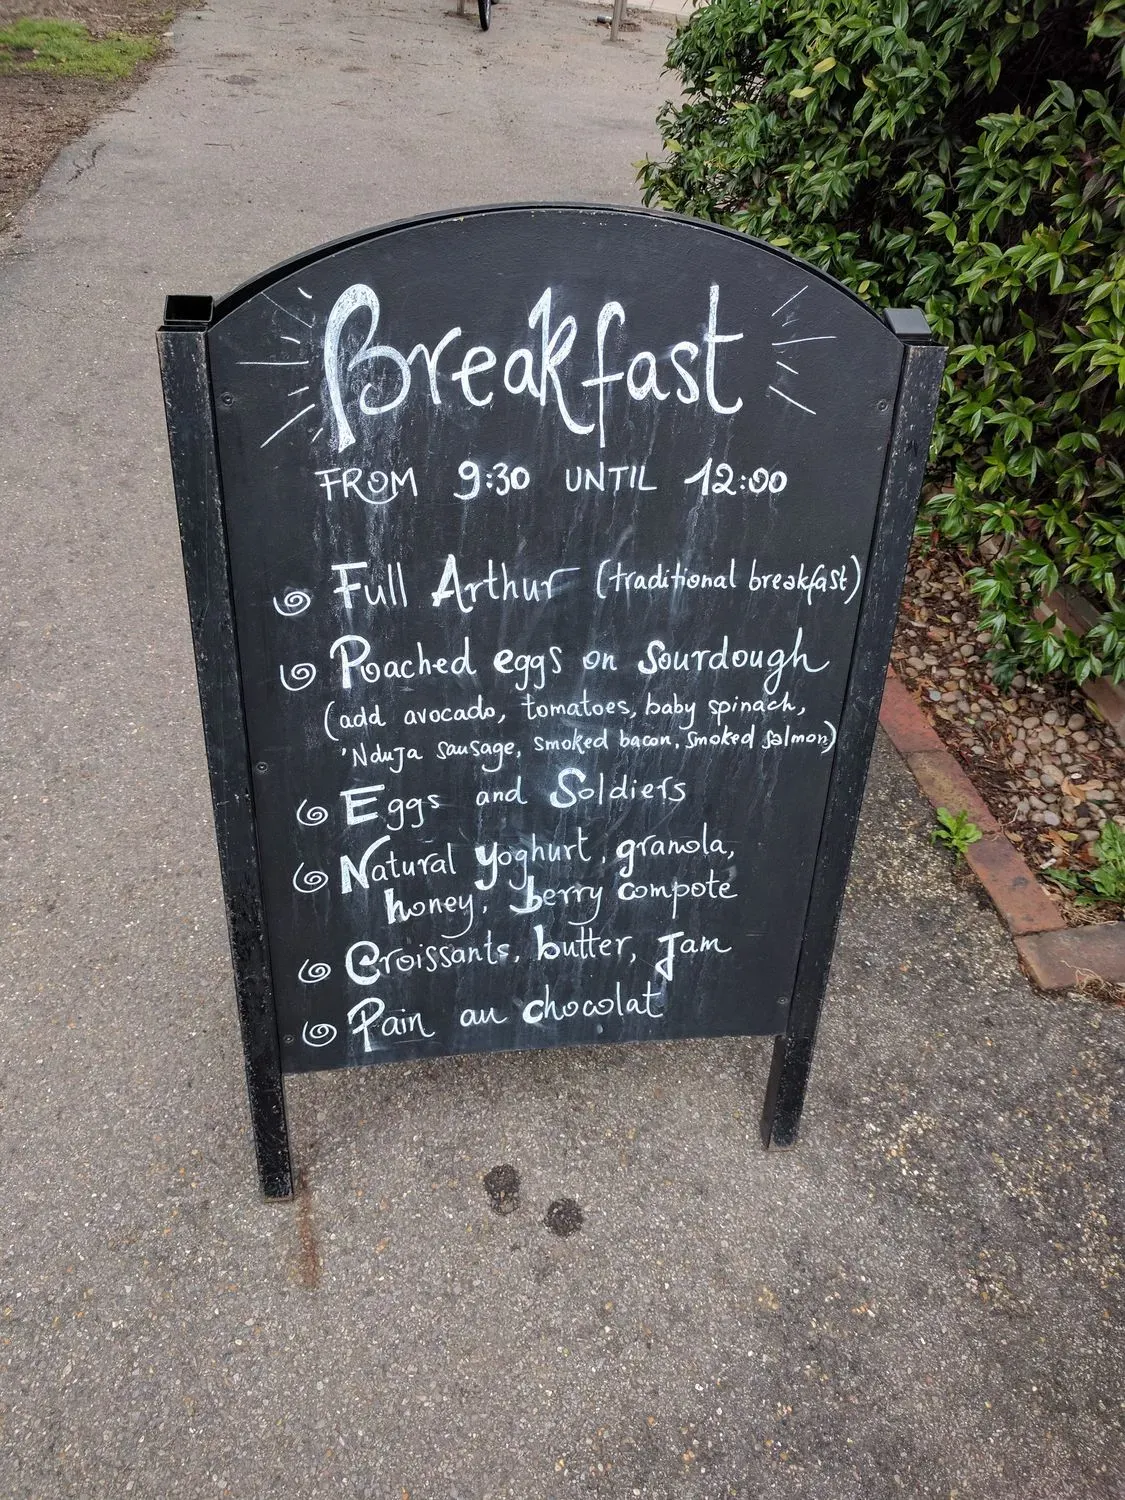 Breakfast
FROM 9:30 UNTIL 12:00
Full Arthur (traditional breakfast)
Poached eggs on Sourdough
(add avocado, tomatoes, baby spinach,
'Nduja sausage, smoked bacon, smoked salmon)
Eggs and Soldiers
Natural yoghurt, granola,
honey, berry compote
Croissants, butter, Jam
Pain au chocolat